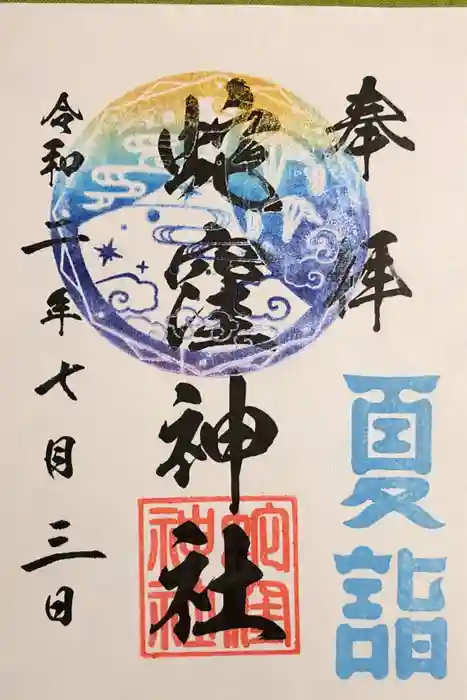 奉拝
夏詣
蛇窪神社
蛇窪神社
令和二年七月三日